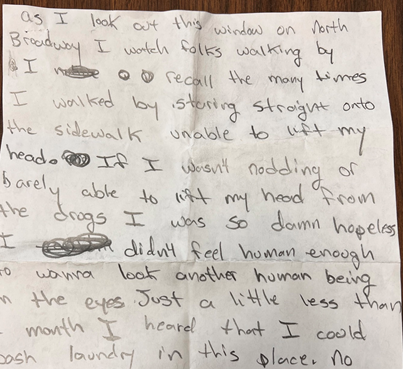 as I look out this window on North
Broadway I watch folks walking by
I recall the many times
I walked by staring straight onto
the sidewalk unable to lift my
head. If I wasn't nodding or
barely able to lift my head from
the drugs I was so damn hopeless
I didn't feel human enough
to wanna look another human being
in the eyes. Just a little less than
month I heard that I could
wash laundry in this place. No